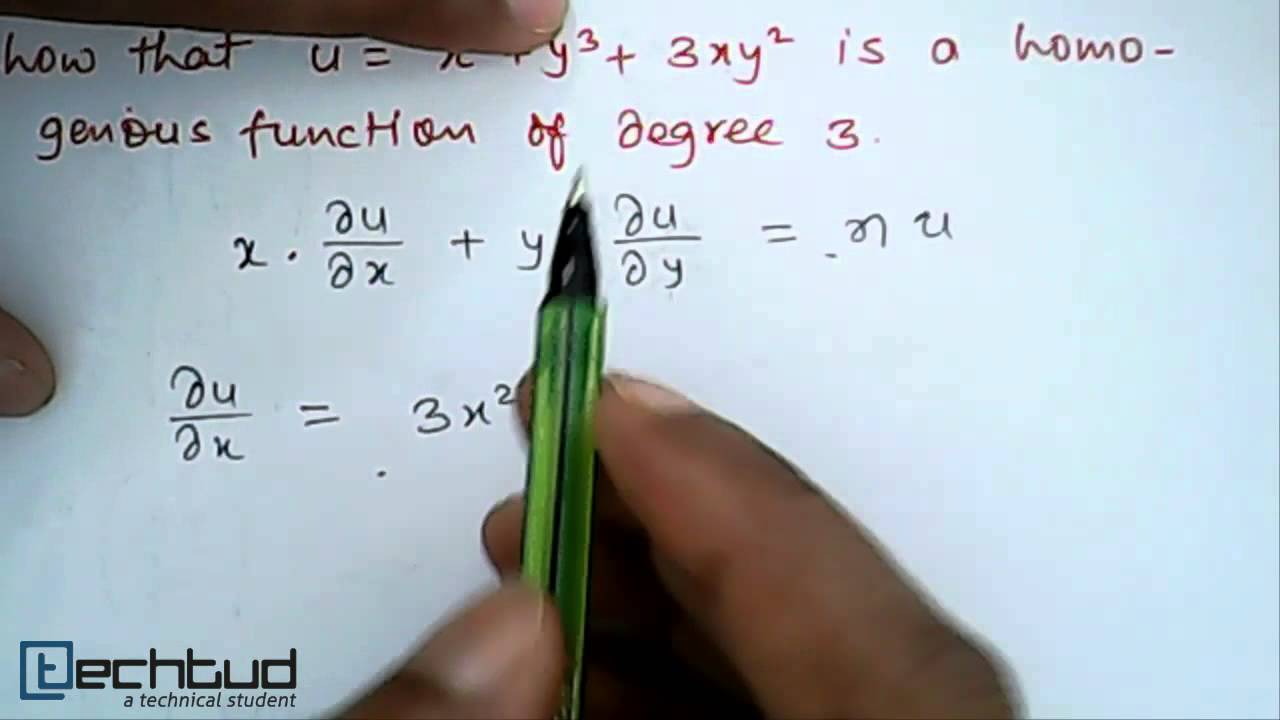 how that u = x + y³ + 3xy² is a homo-
genious function of degree 3.
x . ∂u/∂x + y ∂u/∂y = n u
∂u/∂x = 3x²
techtud
a technical student